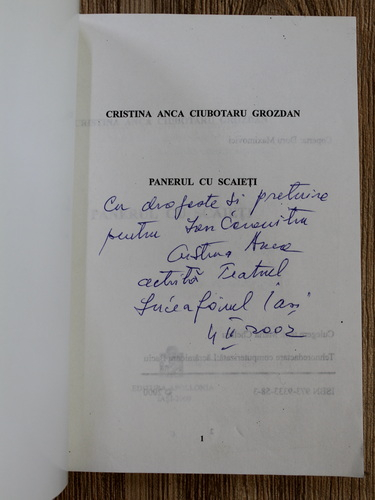 CRISTINA ANCA CIUBOTARU GROZDAN
PANERUL CU SCAIEȚI
Cu dragoste și prețuire
pentru Ion
Cristina Anca
actriță Teatrul
Luceafărul Iași
II 2002
1